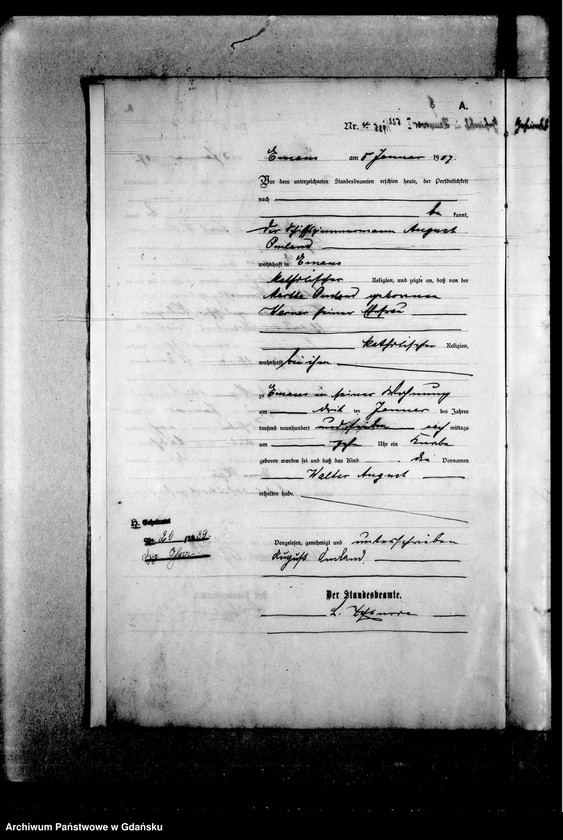 A.
Nr. 4
Emaus am 5 Januar 1907.
Vor dem unterzeichneten Standesbeamten erschien heute, der Persönlichkeit
nach
be kannt,
der Schiffszimmermann August
Omland
wohnhaft in Emaus
katholischer Religion, und zeigte an, daß von der
Omland geborenen
Werner seiner Ehefrau
katholischer Religion,
wohnhaft bei ihm
zu Emaus in seiner Wohnung
am ten Januar des Jahres
tausend neunhundert und sieben nach mittags
um zehn Uhr ein Knabe
geboren worden sei und daß das Kind die Vornamen
Walter August
erhalten habe.
Vorgelesen, genehmigt und unterschrieben
August Omland
Der Standesbeamte.
H. Geheiratet
Archiwum Państwowe w Gdańsku